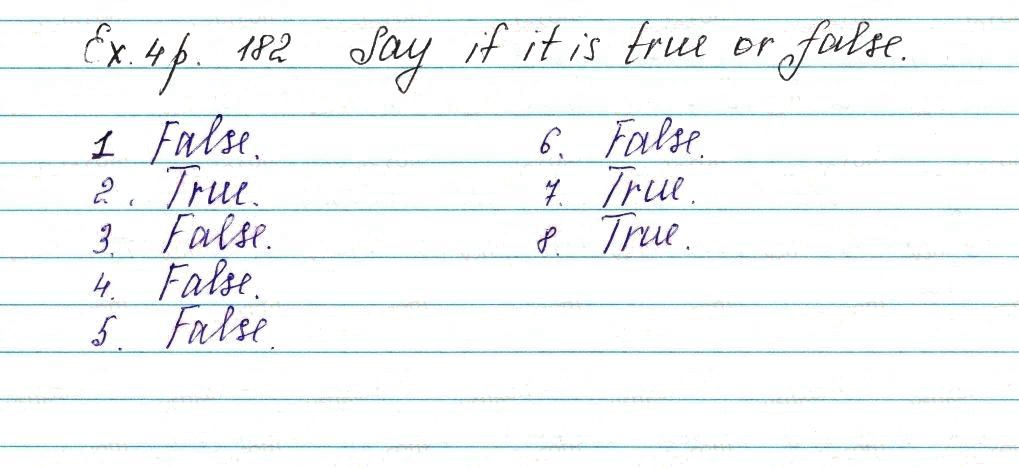 Ex. 4 p. 182 Say if it is true or false.
1 False.
2. True.
3. False.
4. False.
5. False.
6. False.
7. True.
8. True.